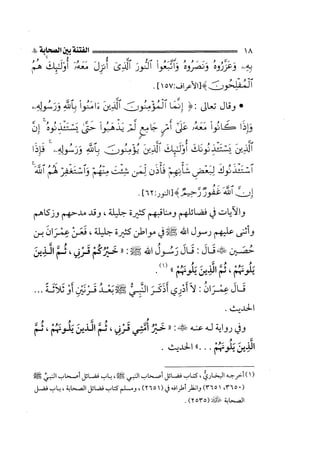 ١٨ الفتنة بين الصحابة
بِهِۦ وَعَزَّرُوهُ وَنَصَرُوهُ وَٱتَّبَعُواْ ٱلنُّورَ ٱلَّذِىٓ أُنزِلَ مَعَهُۥٓ أُوْلَٰٓئِكَ هُمُ
ٱلْمُفْلِحُونَ﴾ [الأعراف:١٥٧].
• وقال تعالى: ﴿إِنَّمَا ٱلْمُؤْمِنُونَ ٱلَّذِينَ ءَامَنُواْ بِٱللَّهِ وَرَسُولِهِۦ
وَإِذَا كَانُواْ مَعَهُۥ عَلَىٰٓ أَمْرٍ جَامِعٍ لَّمْ يَذْهَبُواْ حَتَّىٰ يَسْتَـْٔذِنُوهُ ۚ إِنَّ
ٱلَّذِينَ يَسْتَـْٔذِنُونَكَ أُوْلَٰٓئِكَ ٱلَّذِينَ يُؤْمِنُونَ بِٱللَّهِ وَرَسُولِهِۦ ۚ فَإِذَا
ٱسْتَـْٔذَنُوكَ لِبَعْضِ شَأْنِهِمْ فَأْذَن لِّمَن شِئْتَ مِنْهُمْ وَٱسْتَغْفِرْ لَهُمُ ٱللَّهَ ۚ
إِنَّ ٱللَّهَ غَفُورٌ رَّحِيمٌ﴾ [النور:٦٢].
والآيات في فضائلهم ومناقبهم كثيرة جليلة، وقد مدحهم وزكاهم
وأثنى عليهم رسول الله ﷺ في مواطن كثيرة جليلة، فَعَنْ عِمْرَانَ بن
حُصَين ﷺ قَالَ: قَالَ رَسُولُ الله ﷺ: «خَيْرُكُمْ قَرْنِي، ثُمَّ الَّذِينَ
يَلُونَهُمْ، ثُمَّ الَّذِينَ يَلُونَهُمْ» (١).
قَالَ عِمْرَانُ: لاَ أَدْرِي أَذَكَرَ النَّبِيُّ ﷺ بَعْدُ قَرْنَيْنِ أَوْ ثَلاَثَةً ...
الحديث.
وفي رواية له عنه ﷺ: «خَيْرُ أُمَّتِي قَرْنِي، ثُمَّ الَّذِينَ يَلُونَهُمْ، ثُمَّ
الَّذِينَ يَلُونَهُمْ ...» الحديث.
(١) أخرجه البخاريُّ، كتاب فضائل أصحاب النبي ﷺ، باب فضائل أصحاب النبيِّ ﷺ
(٣٦٥٠، ٣٦٥١) وانظر أطرافه في (٢٦٥١)، ومسلم كتاب فضائل الصحابة، باب فضل
الصحابة (٢٥٣٥).